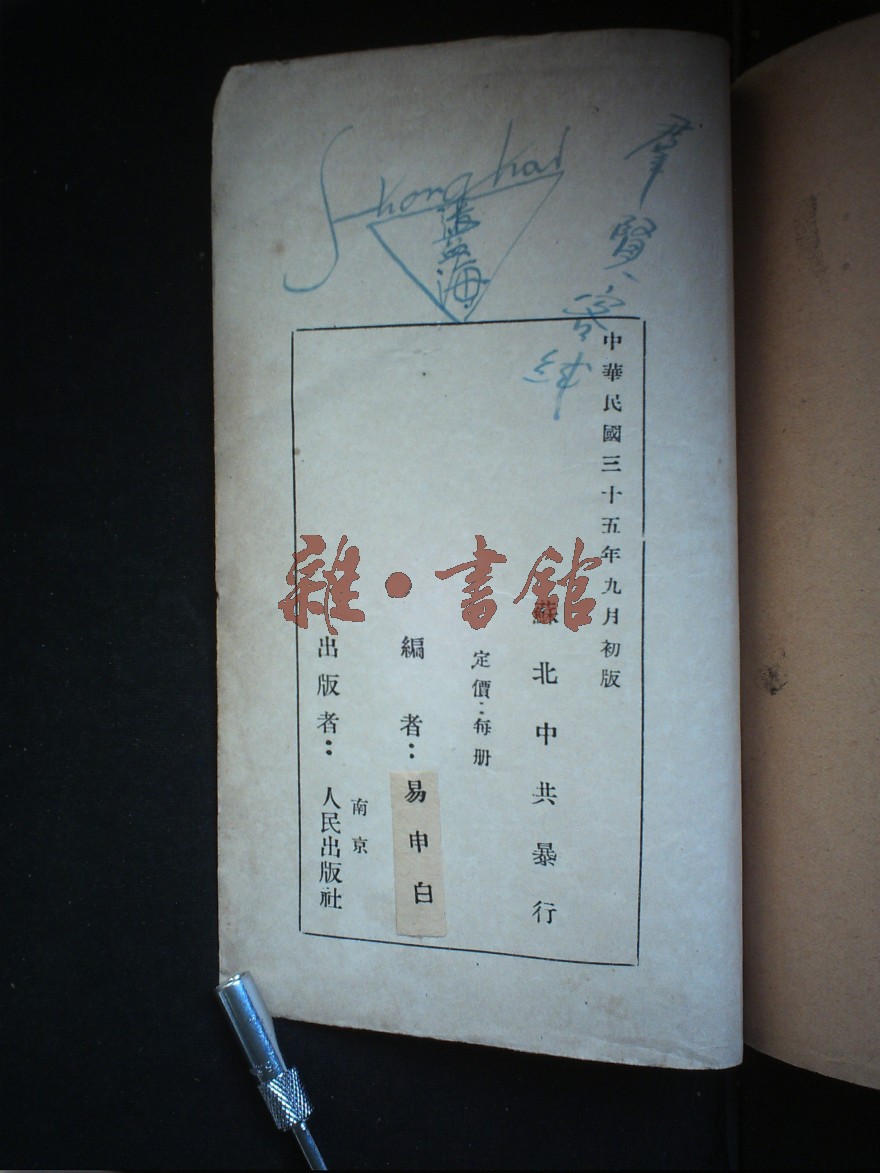 Shanghai
中華民國三十五年九月初版
蘇北中共暴行
定價：每册
編者：易申白
南京
出版者：人民出版社
雜·書館